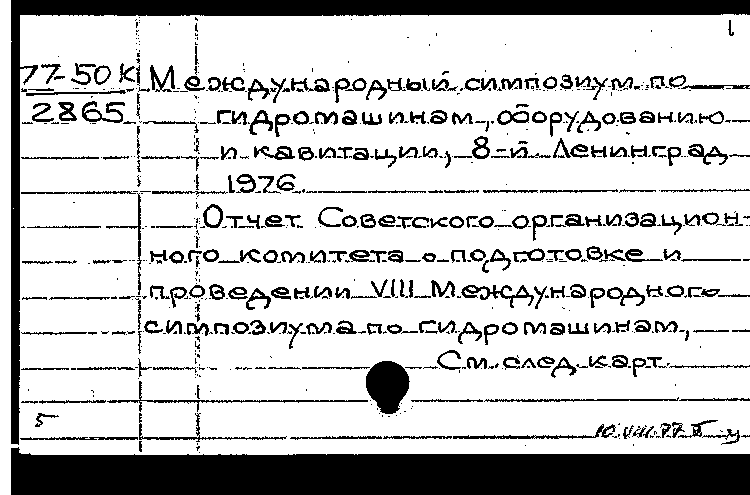 1
77-50К Международный симпозиум по
2865 гидромашинам, оборудованию
и кавитации, 8-й. Ленинград
1976.
Отчет Советского организацион-
ного комитета о подготовке и
проведении VIII Международного
симпозиума по гидромашинам,
См. след. карт.
5
10.VIII.77